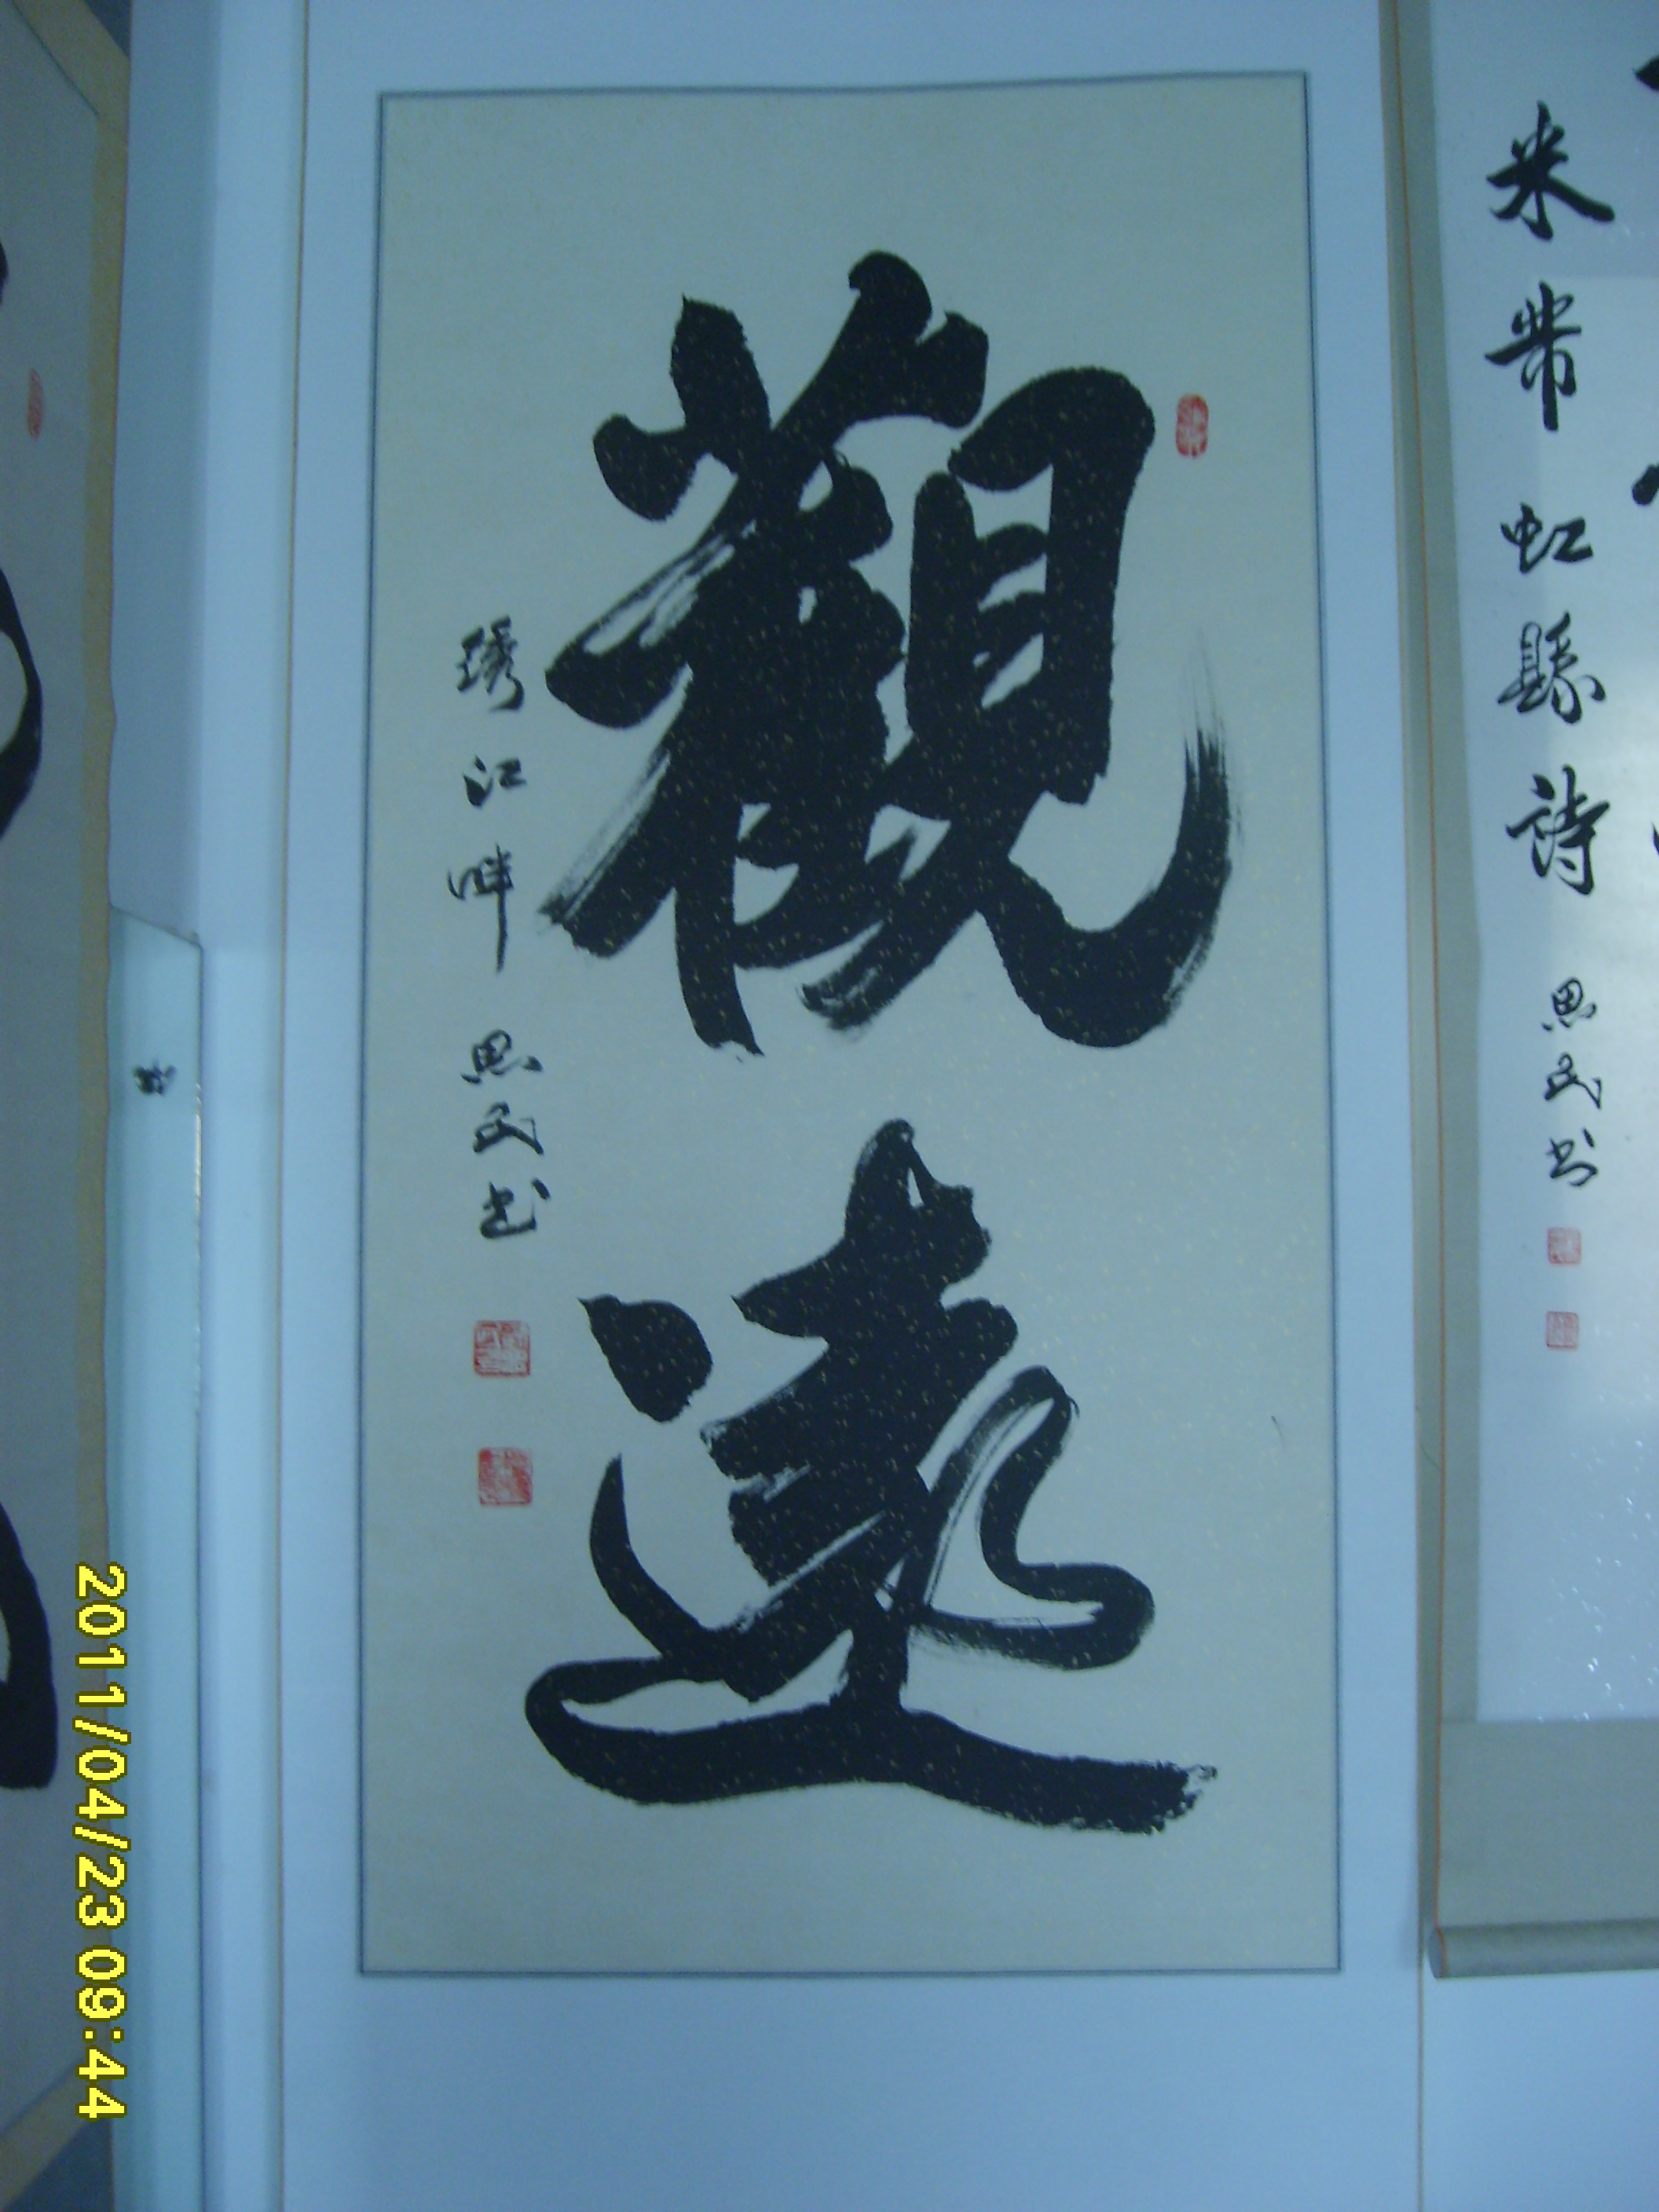 觀遠
琇江畔 思民书
米芾虹縣詩 思民书
2011/04/23 09:44